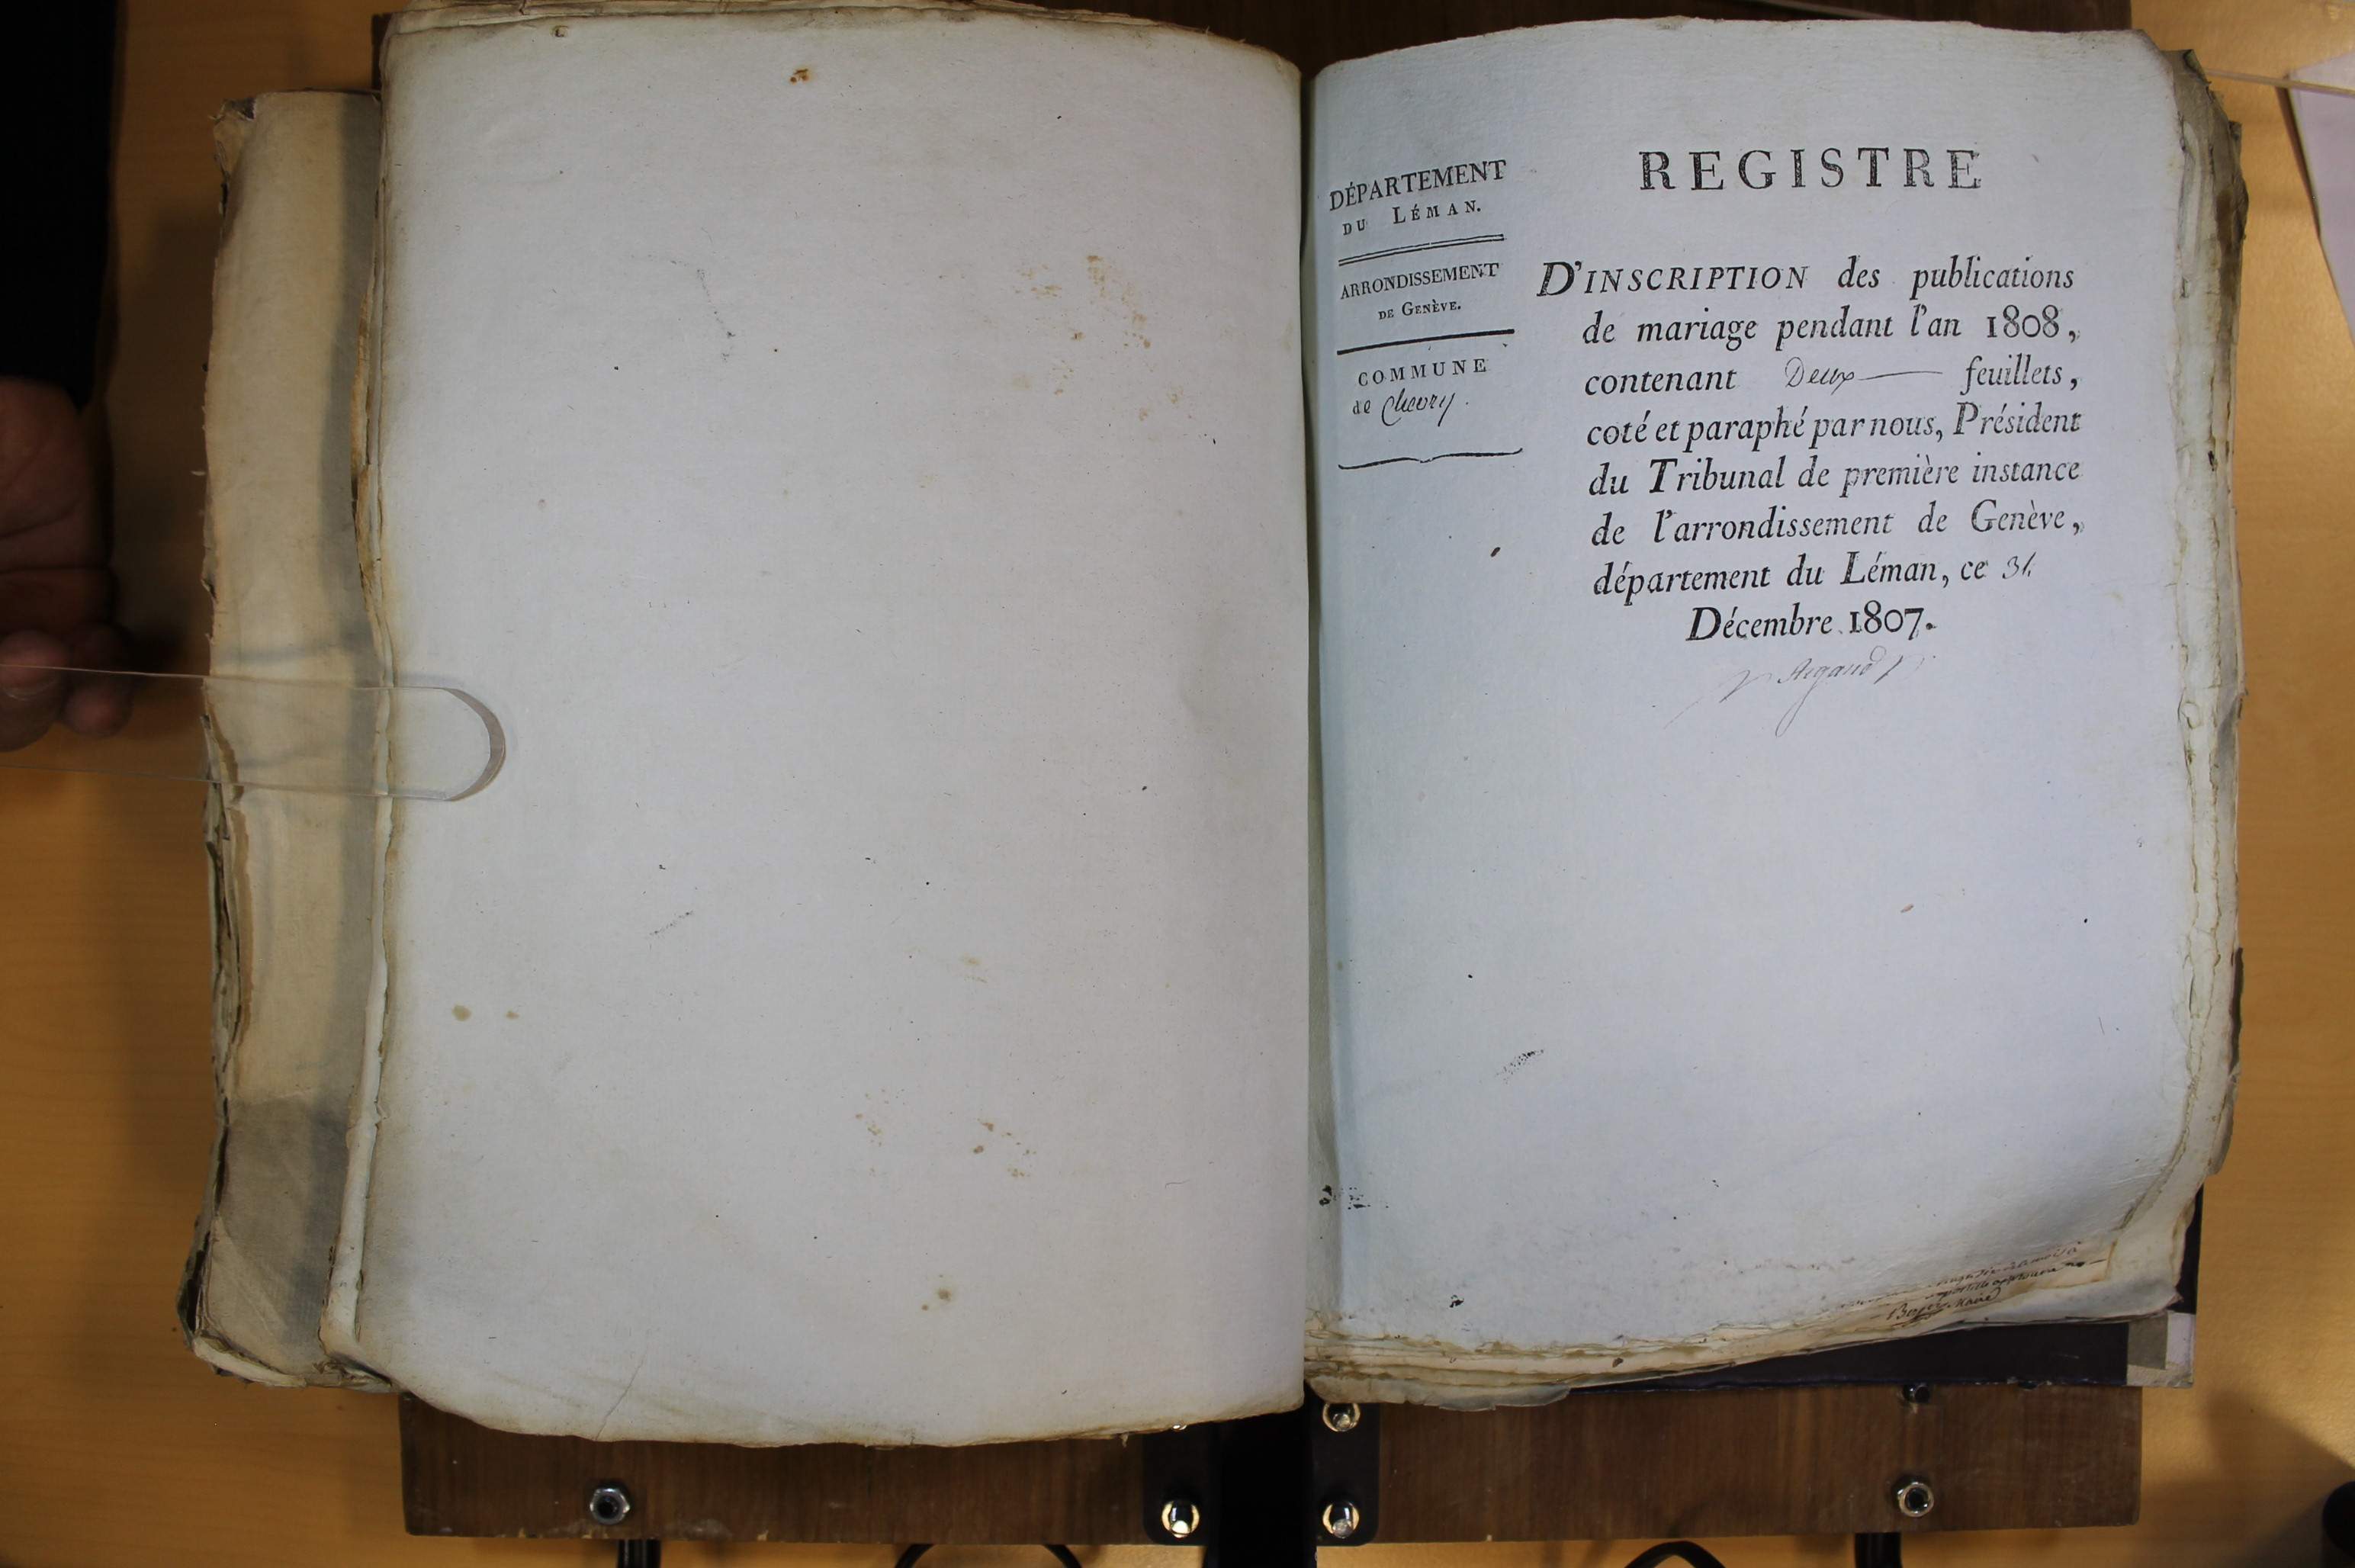 DÉPARTEMENT
DU LÉMAN.
ARRONDISSEMENT
DE GENÈVE.
COMMUNE
de Chevry.
REGISTRE
D'INSCRIPTION des publications
de mariage pendant l'an 1808,
contenant Deux feuillets,
coté et paraphé par nous, Président
du Tribunal de première instance
de l'arrondissement de Genève,
département du Léman, ce 31
Décembre 1807.
Argand